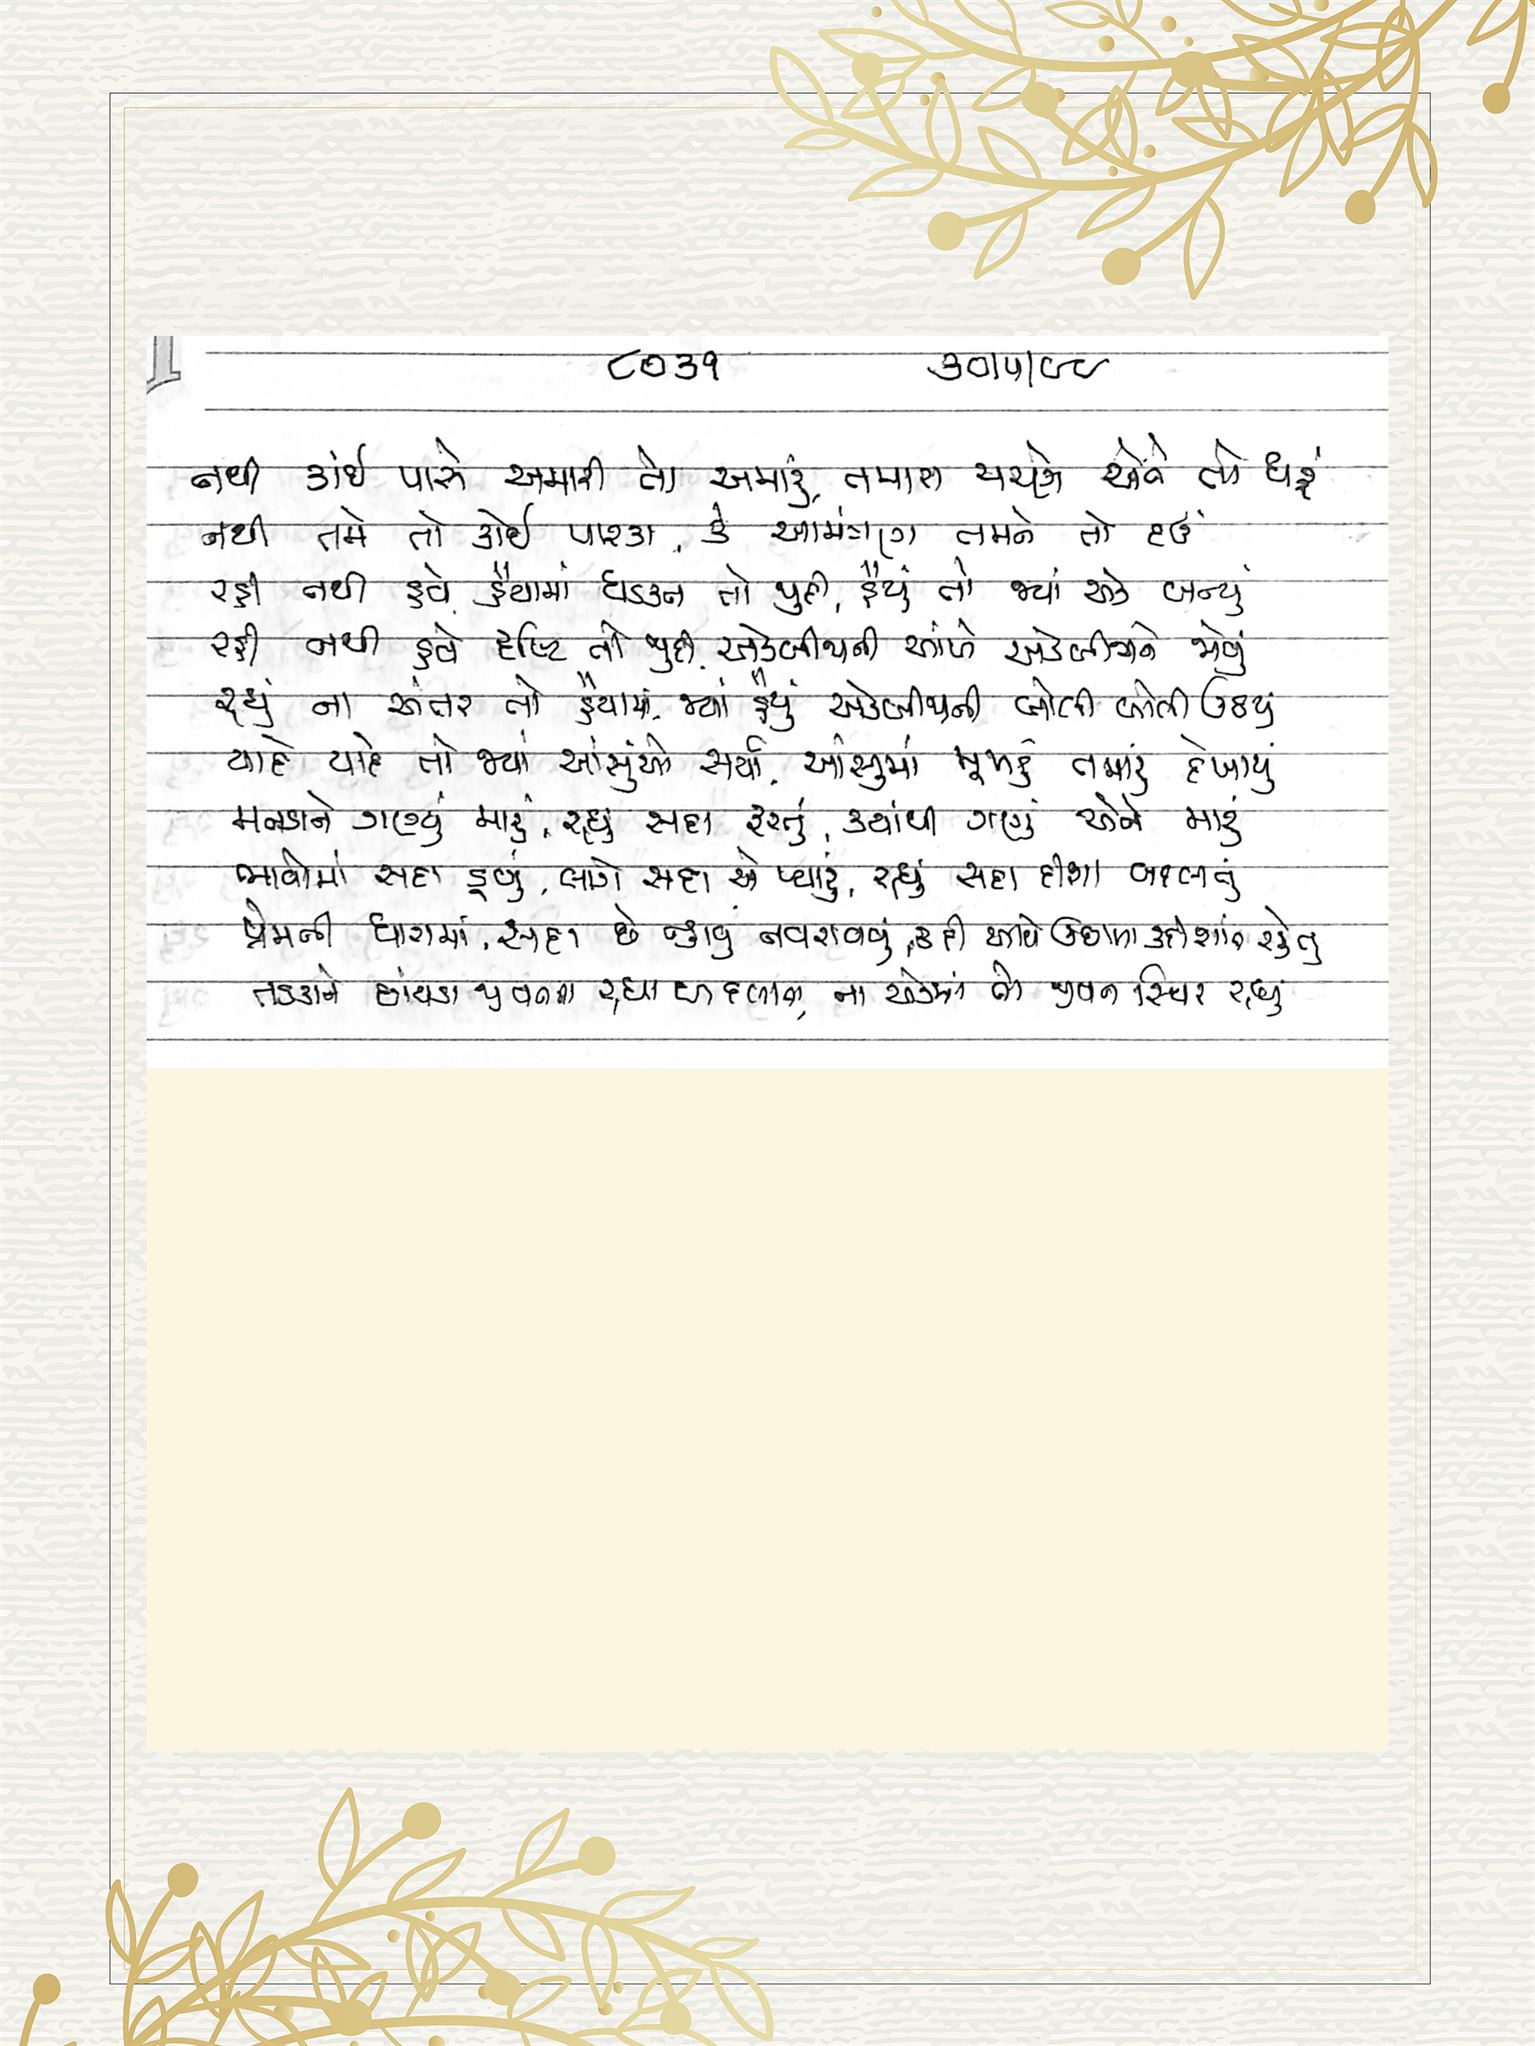 ૮૦૩૧ ૩૦|૫|૯૯
નથી કાંઈ પાસે અમારી તો અમારું, તમારા ચરણે એને તો ધરૂં
નથી તમે તો કોઈ પારકા, કે આમંત્રણ તમને તો દઉં
રહી નથી હવે હૈયામાં ધડકન તો જુદી, હૈયું તો જ્યાં એક બન્યું
રહી નથી હવે દૃષ્ટિ તો જુદી, એકબીજાની આંખે એકબીજાને જોવું
રહ્યું ના અંતર તો હૈયામાં, જ્યાં હૈયું એકબીજાની બોલી બોલી ઉઠયું
યાદે યાદે તો જ્યાં આંસુઓ સર્યા, આંસુમાં મુખડું તમારું દેખાયું
મનડાને ગણ્યું મારું, રહ્યું સદા ફરતું, ક્યાંથી ગણું એને મારું
ભાવોમાં સદા ડૂબવું, લાગે સદા એ પ્યારું, રહ્યું સદા દિશા બદલતું
પ્રેમની ધારામાં, સદા છે ન્હાવું નવરાવવું, કદી આવે ઉછાળા કદી શાંત રહેતું
તડકાને છાંયડા જીવનના રહ્યા બદલાતા, ના એકમાં તો જીવન સ્થિર રહ્યું